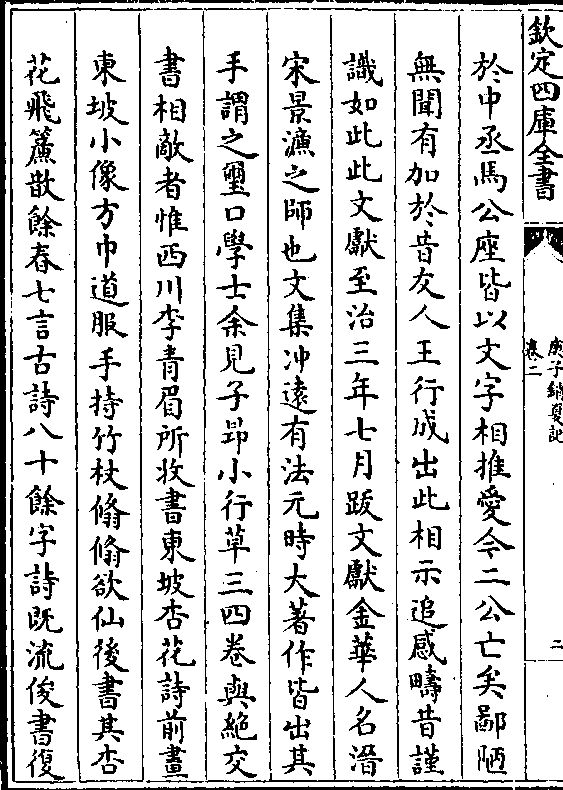 欽定四庫全書
庚子銷夏記
卷二
二
於中丞馬公座皆以文字相推愛今二公亡矣鄙陋
無聞有加於昔友人王行成出此相示追感疇昔謹
識如此此文獻至治三年七月跋文獻金華人名溍
宋景濂之師也文集冲遠有法元時大著作皆出其
手謂之璽口學士余見子昂小行草三四卷與絶交
書相敵者惟西川李青眉所收書東坡杏花詩前畫
東坡小像方巾道服手持竹杖翛翛欲仙後書其杏
花飛簾散餘春七言古詩八十餘字詩既流俊書復